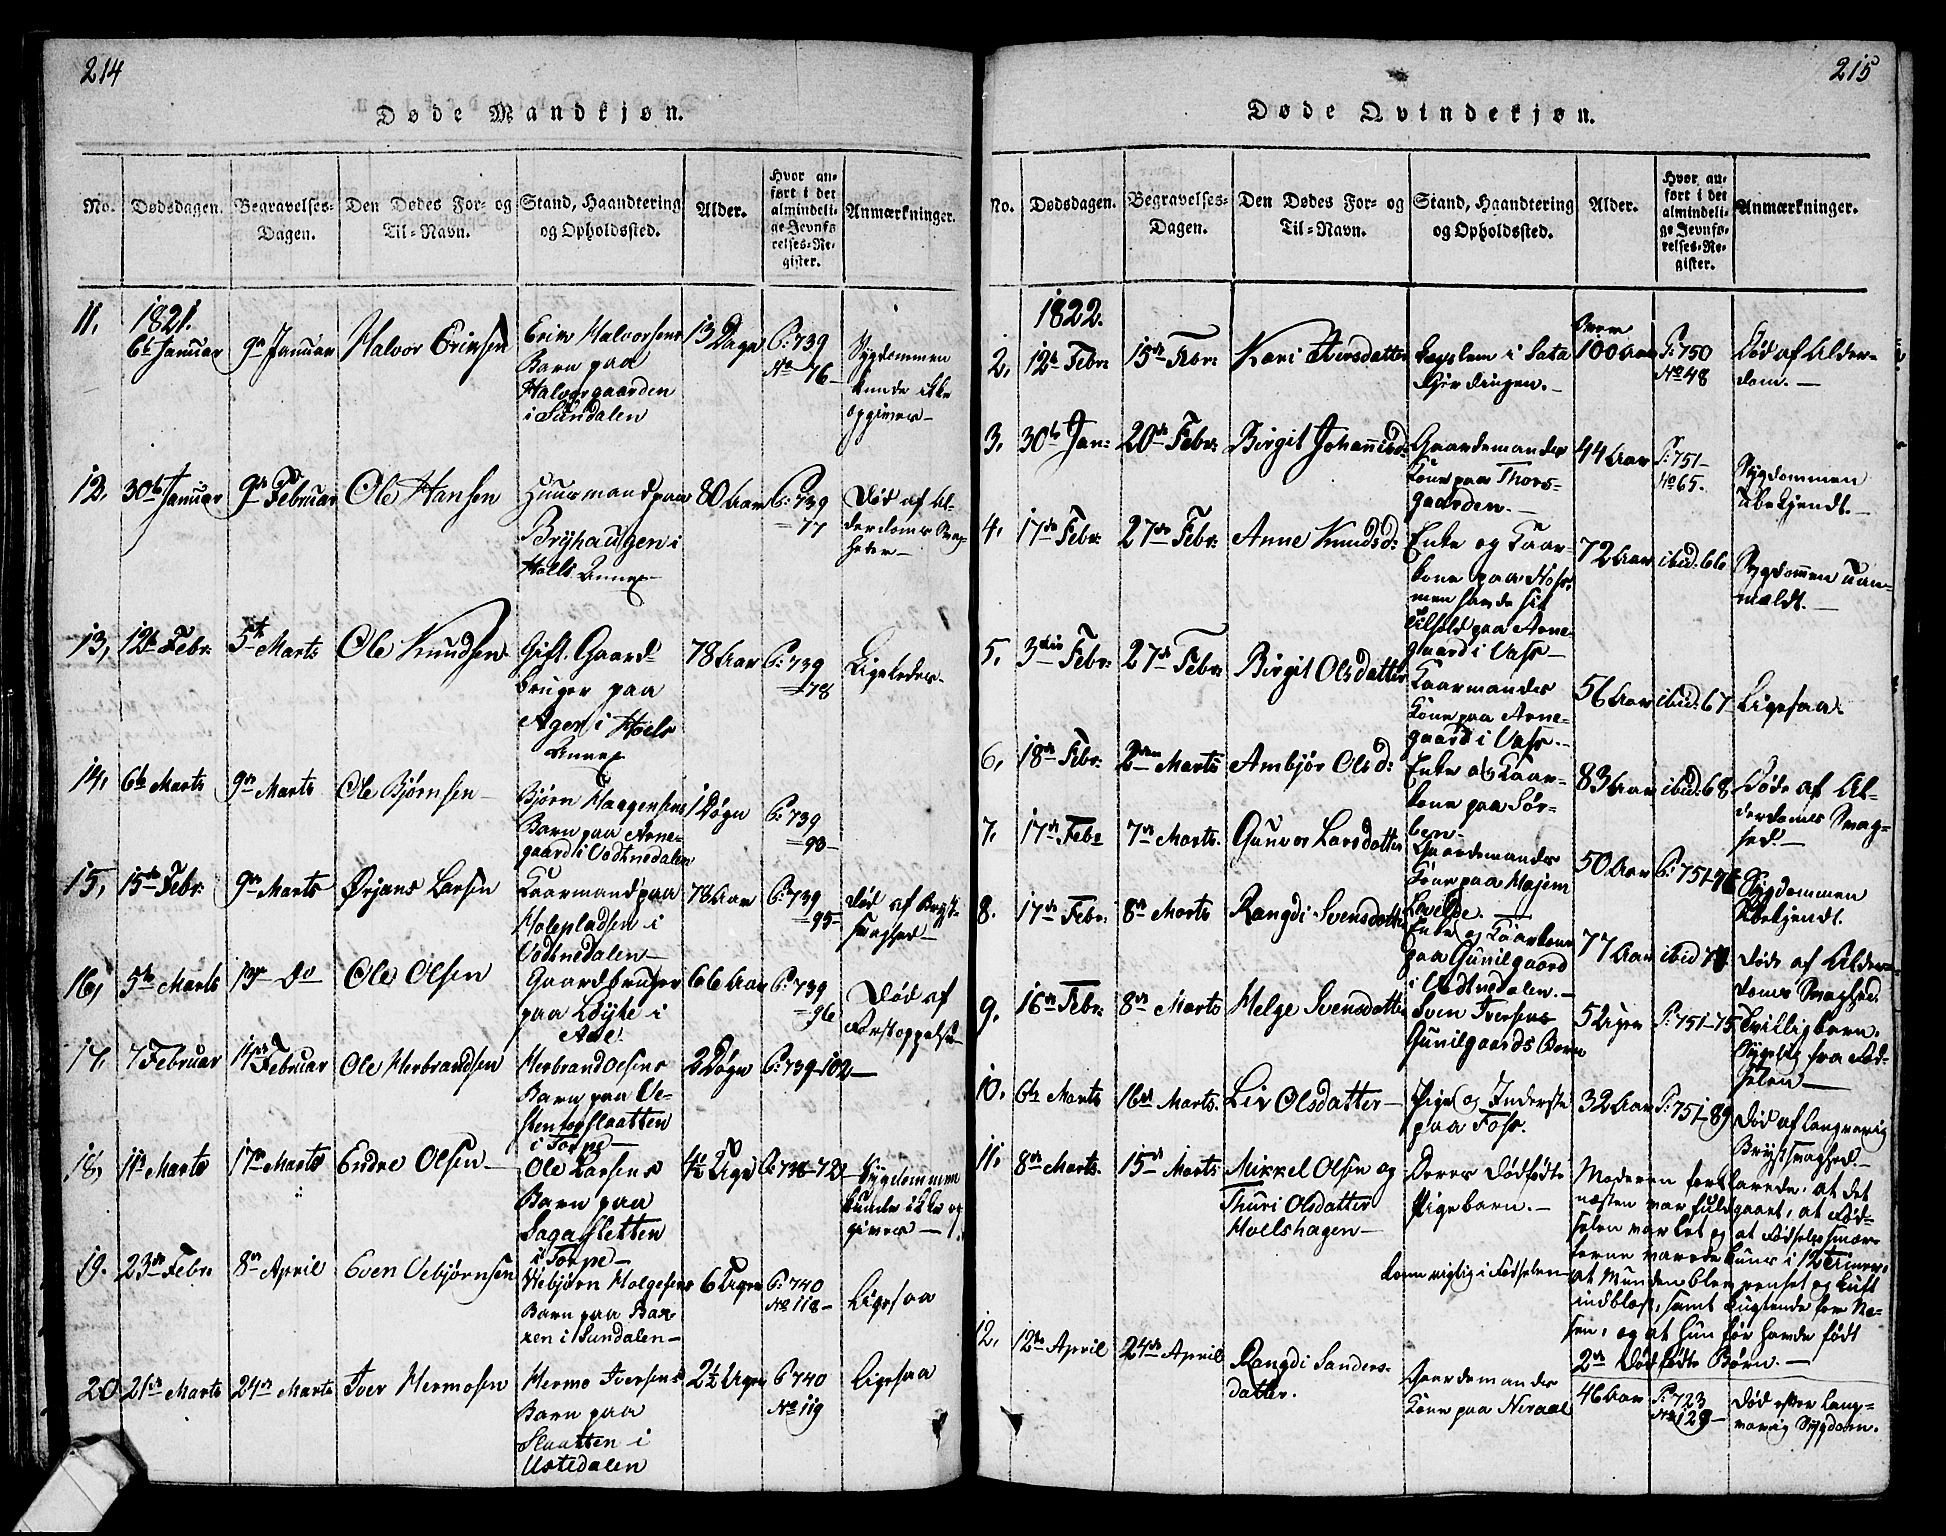 214
Døde Mandkjøn.
No.
Dødsdagen.
Begravelses-
Dagen.
Den Dødes For- og
Til-Navn.
Stand, Haandtering
og Opholdssted.
Alder.
Hvor an-
ført i det
almindeli-
ge Jevnfø-
relses-Re-
gister.
Anmærkninger.
11,
1821.
6te Januar
9de Januar
Halvor Erinsen
Erin Halvorsens
Barn paa
Halvorgaarden
i Sundalen
13 Dage
P: 739
No 76-
Sygdommen
kunde ikke
opgives-
12,
30te Januar
9de Februar
Ole Hansen
Huusmand paa
Bryhaugen i
Hols Annex-
80 Aar
P: 739
= 77
Død af Al-
derdoms Svag-
heder-
13,
12te Febr:
5te Marts
Ole Knudsen
Gift Gaard-
bruger paa
Ager i Hoels
Annex
78 Aar
P: 739
=78
Ligeledes-
14,
6te Marts
9de Marts
Ole Bjørnsen-
Bjørn Haagensens
Barn paa Arne-
gaard i Vodtnedalen
1 Døgn
P: 739
=90-
15,
15de Febr:
9de Marts
Ørjans Larsen
Kaarmand paa
Holepladsen i
Vodtnedalen-
78 Aar
P: 739
=95-
Død af Bryst-
svaghed-
16,
5te Marts
13de Do
Ole Olsen
Gaardbruger
paa
i
Aal
66 Aar
P: 739
=96
Død af
Forstoppelse-
17,
7 Februar
14de Februar
Ole Herbrandsen
Herbrand Olsens
Barn paa Ve-
slaatten
i Torpe-
2 Døgn
P: 739-102-
18,
11te Marts
17de Marts
Endre Olsen-
Ole Larsens
Barn paa
Sagasletten
i Torpe-
4½ Uge
-Sygdommen
kunde ikke op
gives-
19.
23de Febr:
8de April
Sven Vebjørnsen
Vebjørn Helgesens
Barn paa Bak-
ken i Sundalen-
6 Uger
P: 740
No 118-
Ligesaa
20
21de Marts
24de Marts
Iver Hermosen
Hermo Iversens
Barn paa
Slaatten i
Ustedalen
2½ Uger
P 740
No 119
Ligesaa
215
Døde Qvindekjøn.
No.
Dødsdagen.
Begravelses-
Dagen.
Den Dødes For- og
Til-Navn.
Stand, Haandtering
og Opholdssted.
Alder.
Hvor an-
ført i det
almindeli-
ge Jevnfø-
relses-Re-
gister.
Anmærkninger.
1822.
2,
12te Febr:
15de Febr:
Kari Iversdatter
Lægslem i Sata
Gjerdingen.-
over
100 Aar
P: 750
No 48
Død af Alder-
dom.-
3,
30te Jan:
20de Febr:
Birgit Johannisd:
Gaardemandes
Kone paa Thors-
gaarden.-
44 Aar
P: 751-
No 65.
Sygdommen
Ubekjendt.-
4,
17de Febr:
27de Febr:
Anne Knudsd:
Enke og Kaar-
kone paa
men havde sit
Tilhold paa Arne-
gaard i Vats-
72 Aar
ibid: 66
Sygdommen uan-
meldt.-
5,
3die Febr:
27de Febr:
Birgit Olsdatter
Kaarmandes
Kone paa Arne-
gaard i Vats.-
56 Aar
ibid: 67
Ligesaa.
6,
18de Febr:
2den Marts
Ambjør Olsd:
Enke og Kaar-
kone paa Sør-
ben-
83 Aar
ibid: 68
Døde af Al-
derdoms Svag-
hed.-
7,
17de Febr
7de Marts.
Gunvor Larsdatter
Gaardemandes
Kone paa Majem
50 Aar
Sygdommen
Ubekjendt.
8.
17de Febr:
8de Marts
Rangdi Svensdatter
Enke og Kaarkone
paa Gunilgaard
i Vodtnedalen.-
77 Aar
Døde af Alder-
doms Svaghed.
9,
16de Febr:
8de Marts
Helge Svensdatter
Sven Iversens
Gunilgaards Børn
5 Uger
P: 751-75
Tvillingbarn.
Sygelig fra Fød-
selen-
10,
6te Marts
16de Marts.
Liv Olsdatter-
Pige og Inderste
paa Foss.
32 Aar
P: 751-89
Død af langvarig
Brystsvaghed.-
11.
8de Marts.
15de Marts
Mikkel Olsen og
Thuri Olsdatter
Hoelshagen-
Deres dødfødte
Pigebarn.-
Moderen forklarede: at det
næsten var fuldgaaet, at Fød-
selen var let og at Fødselssmær-
terne varede kuns i 12 Timer,
kom rigtig i Fødselen-
at Munden blev renset og Luft
indblæst, samt Lugtende for Næ-
sen, og at hun før havde født
2de Dødfødte Børn.-
12,
12te April
24de April
Rangdi Sanders-
datter.
Gaardemandes
Kone paa Neraal
46 Aar
P: 723
No 129-
Død efter lang-
varig Sygdom.